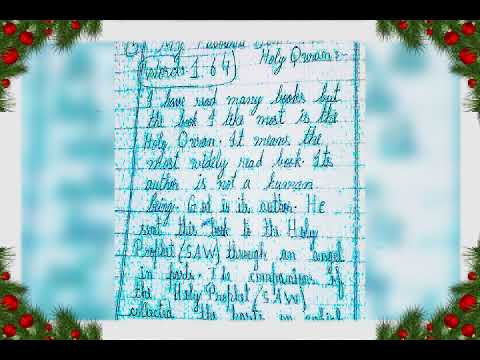 My Favourite
(Words 164) Holy Quran:
I have read many books but
the book I like most is the
Holy Quran. It means the
most widely read book. Its
author is not a human
being. God is its author. He
sent this book to the Holy
Prophet (SAW) through an angel
in parts. The companions of
the Holy Prophet (SAW)
collected the parts